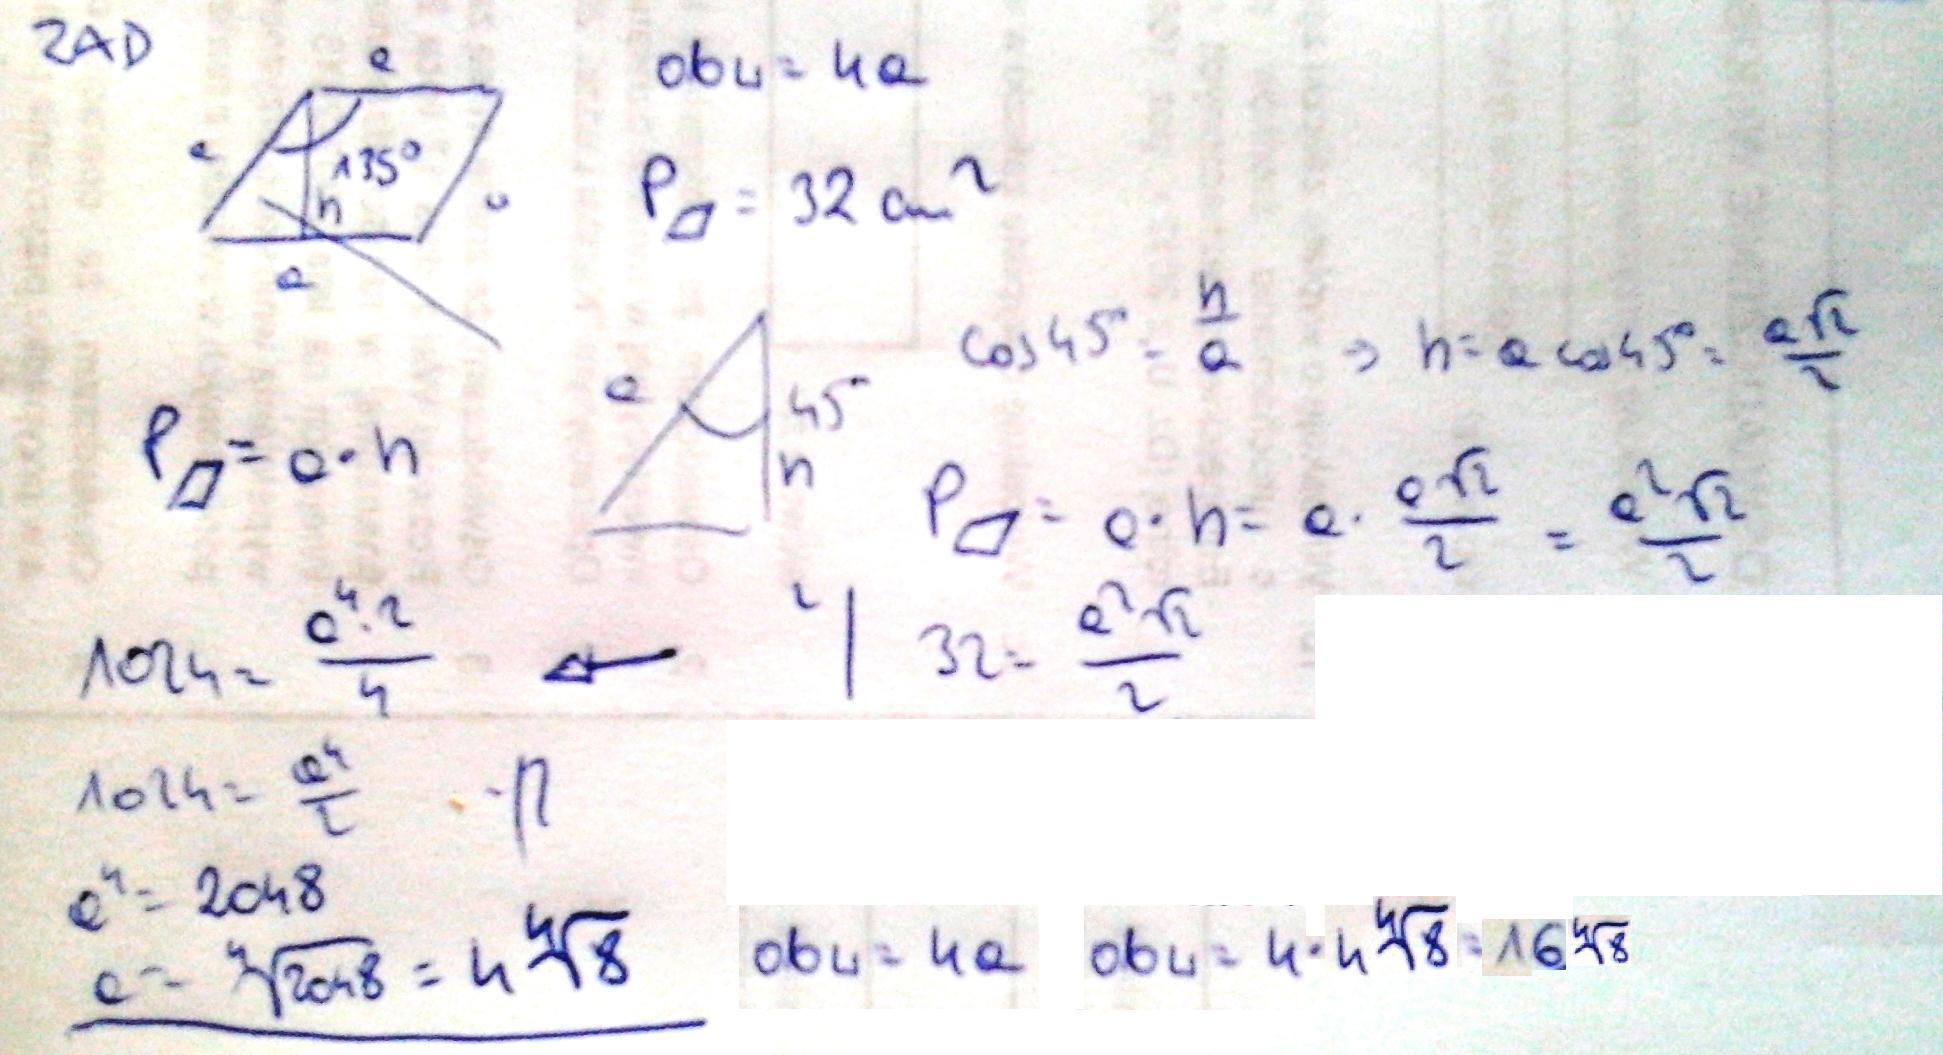 ZAD
a
a
135°
h
a
a
obw = 4a
P▱ = 32 cm²
a
45°
h
cos45° = h/a ⇒ h = a cos45° = a√2/2
P▱ = a·h
P▱ = a·h = a · a√2/2 = a²√2/2
² | 32 = a²√2/2
1024 = a⁴·2/4 ←
1024 = a⁴/2
a⁴ = 2048
a = ⁴√2048 = 4 ⁴√8
obw = 4a
obw = 4·4 ⁴√8 = 16 ⁴√8